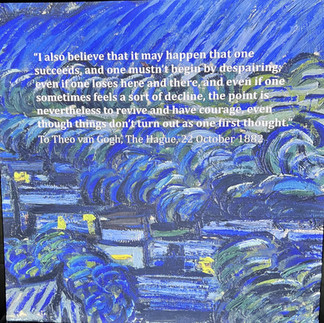 "I also believe that it may happen that one
succeeds, and one mustn't begin by despairing;
even if one loses here and there, and even if one
sometimes feels a sort of decline, the point is
nevertheless to revive and have courage, even
though things don't turn out as one first thought."
To Theo van Gogh, The Hague, 22 October 1882